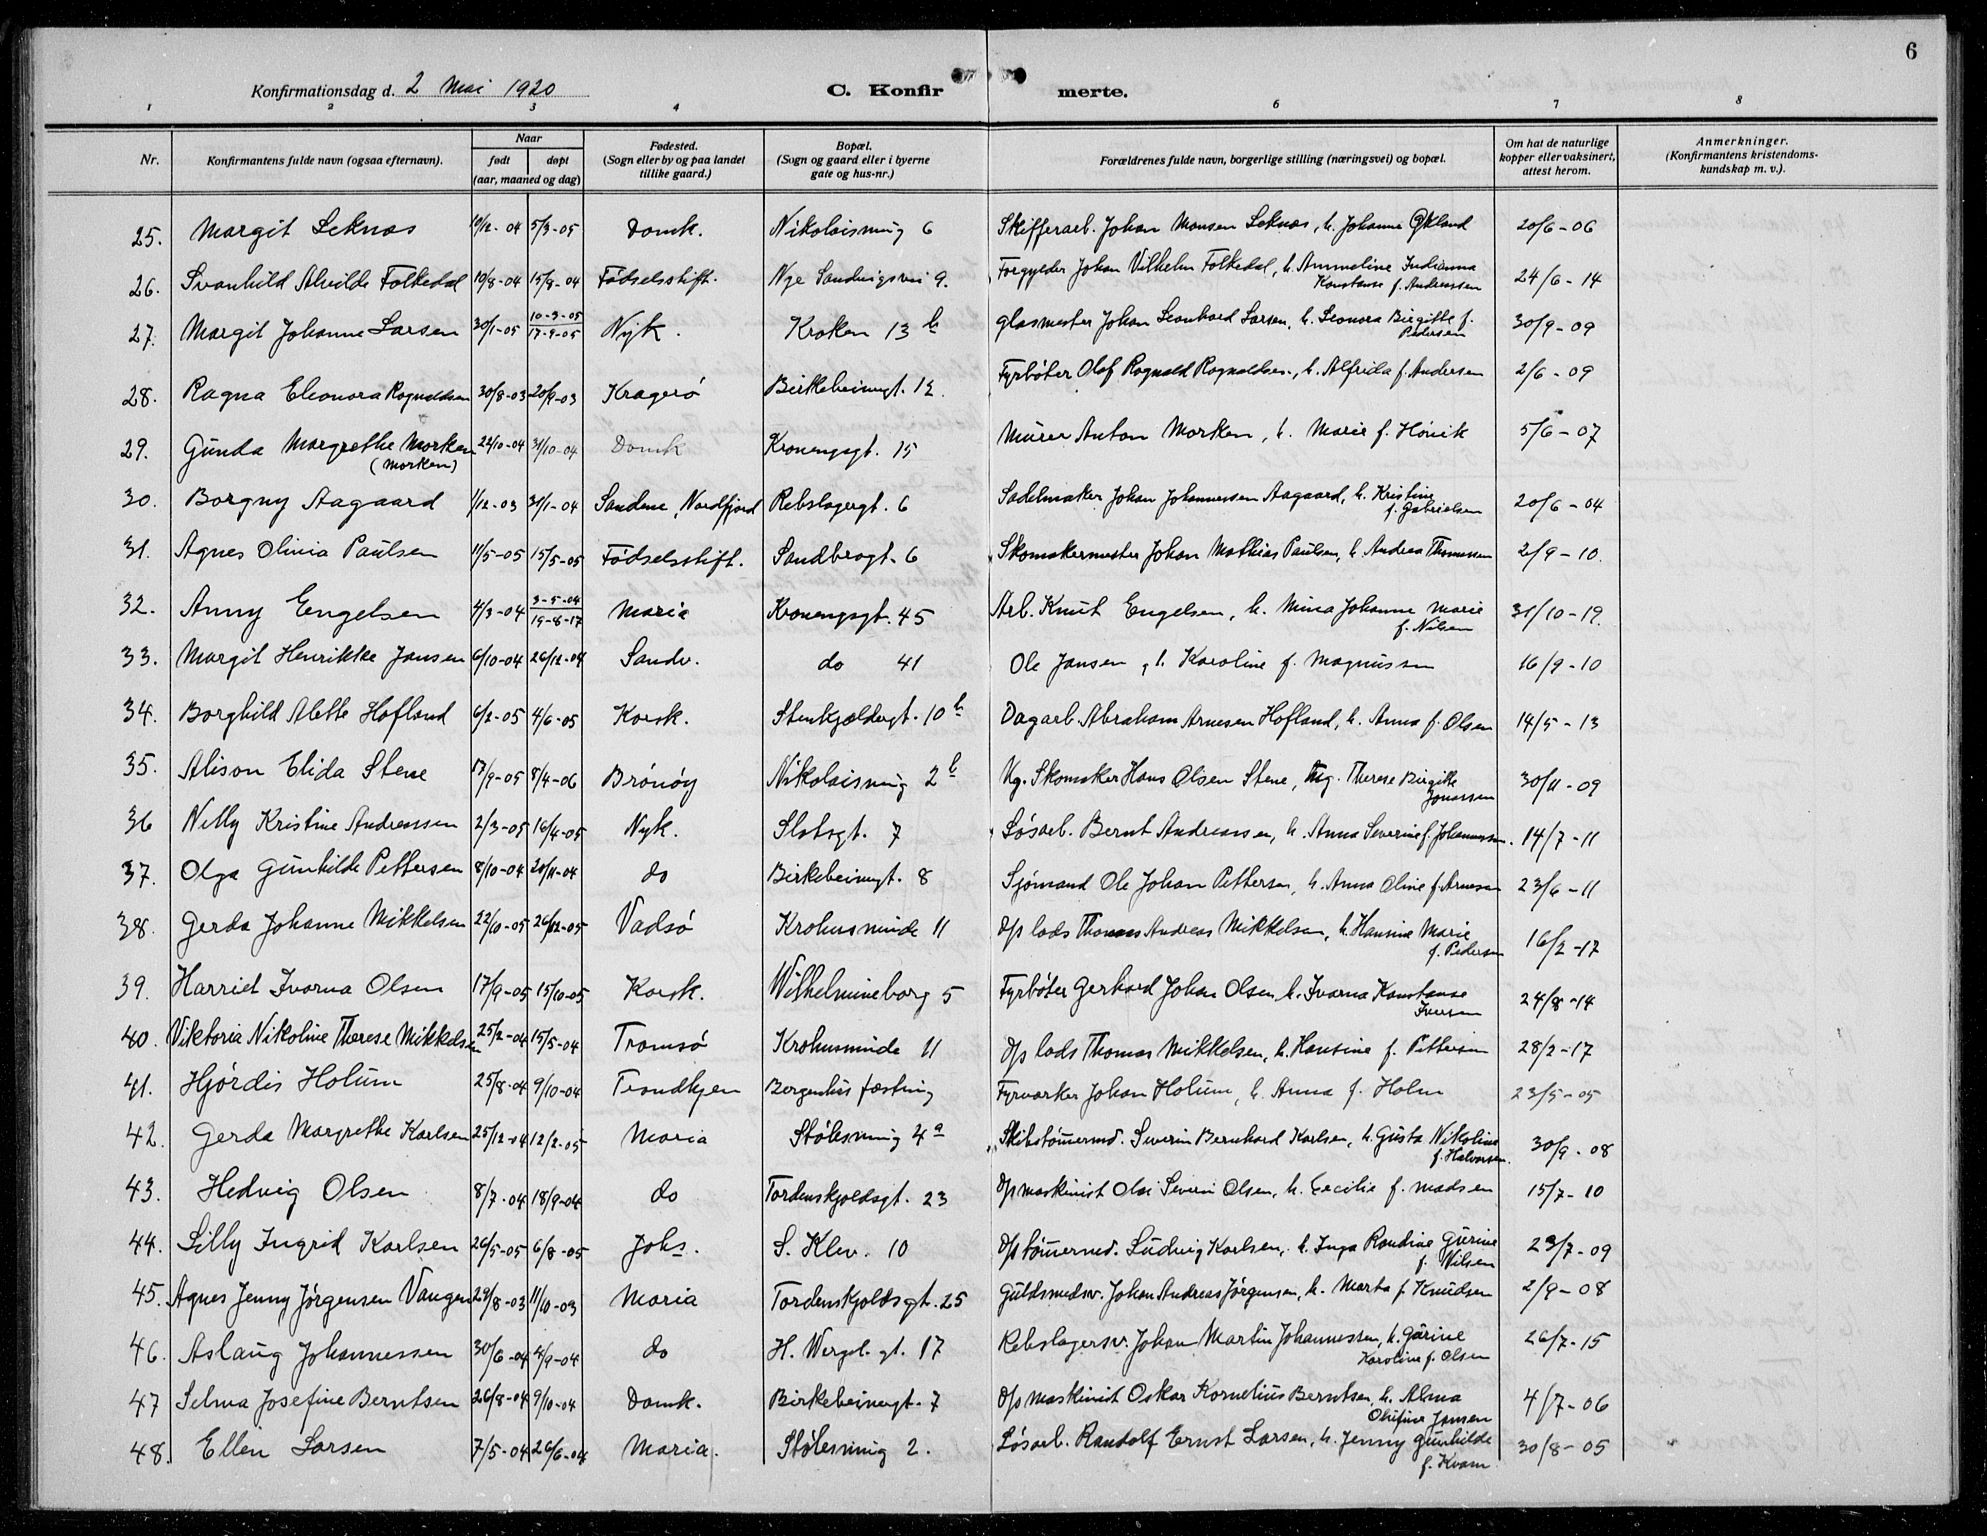 6
Konfirmationsdag d. 2 Mai 1920
C. Konfirmerte.
1 2 3 4 6 7 8
Nr.
Konfirmantens fulde navn (ogsaa efternavn).
Naar
født døpt
(aar, maaned og dag)
Fødested.
(Sogn eller by og paa landet
tillike gaard.)
Bopæl.
(Sogn og gaard eller i byerne
gate og hus-nr.)
Forældrenes fulde navn, borgerlige stilling (næringsvei) og bopæl.
Om hat de naturlige
kopper eller vaksinert,
attest herom.
Anmerkninger.
(Konfirmantens kristendoms-
kundskap m. v.).
25. Margit Seknæs 10/12-04 5/3-05 Domk. Nikolaismug 6 Skifferarb. Johan Monsen Seknæs, h. Johanne Økland 20/6-06
26. Svanhild Alvilde Folkedal 10/8-04 15/9-04 Fødselsstift. Nye Sandvigsvei 9. Forgylder Johan Vilhelm Folkedal, h. Ammeline Indianna
Konstanse f. Andreassen 24/6-14
27. Margit Johanne Larsen 30/1-05 10-3-05
17-9-05 Nyk. Kroken 13 b Glasmester Johan Leonhard Larsen, h. Leonora Birgitte f.
Pedersen 30/9-09
28. Ragna Eleonora Ragnvaldsen 30/8-03 20/9-03 Kragerø Birkebeinergt. 12 Fyrbøter Olaf Ragnvald Ragnvaldsen, h. Alfrida f. Andersen 2/6-09
29. Gunda Margrethe Morken
(Morken) 22/10-04 31/10-04 Domk Kronengsgt. 15 Murer Anton Morken, h. Marie f. Hönik 5/6-07
30. Borgny Aagaard 1/12-03 31/1-04 Sandene, Nordfjord Rebslagergt. 6 Sadelmaker Johan Johannessen Aagaard, h. Kristine
f. Gabrielsen 20/6-04
31. Agnes Olivia Paulsen 11/5-05 15/5-05 Fødselsstift. Sandbrogt. 6 Skomakermester Johan Mathias Paulsen, h. Andrea Thomassen 2/9-10.
32. Anny Engelsen 4/3-04 3-5-04
19-8-17 Maria Kronengsgt. 45 Arb. Knut Engelsen, h. Mina Johanne Marie
f. Nilsen 31/10-19.
33. Margit Henrikke Jansen 6/10-04 26/12-04 Sandv. do 41 Ole Jansen, h. Karoline f. Magnussen 16/9-10
34. Borghild Alette Hofland 6/2-05 4/6-05 Korsk. Stenkjeldergt. 10 b Dagarb. Abraham Arnesen Hofland, h. Anna f. Olsen 14/5-13
35. Alison Elida Stene 17/9-05 8/4-06 Brönöy Nikolaismug 2 b Ug. Skomaker Hans Olsen Stene, Ug. Therese Birgitte
Jonassen 30/11-09
36 Nelly Kristine Andreassen 2/3-05 16/4-05 Nyk. Slotsgt. 7 Løsarb. Bernt Andreassen, h. Anna Severine f. Johannessen. 14/7-11
37. Olga Gunhilde Pettersen 8/10-04 20/11-04 do Birkebeinergt. 8 Sjømand Ole Johan Pettersen, h. Anna Oline f. Arnesen 23/6-11
38. Gerda Johanne Mikkelsen 22/10-05 26/12-05 Vadsø Krohusminde 11 D/s lods Thomas Andreas Mikkelsen, h. Hansine Marie
f. Pedersen 16/2-17
39. Harriet Ivarna Olsen 17/9-05 15/10-05 Korsk. Wilhelmineborg 5 Fyrbøter Gerhard Johan Olsen, h. Ivarna Konstanse
Iversen 24/8-14
40. Viktoria Nikoline Therese Mikkelsen 25/2-04 15/5-04 Tromsø Krohusminde 11 D/s lods Thomas Mikkelsen, h. Hansine f. Pettersen 28/2-17
41. Hjørdis Holum 25/8-04 9/10-04 Trondhjem Bergenhus fæstning Fyrvarker Johan Holum, h. Anna f. Holm 23/5-05
42. Gerda Margrethe Karlsen 25/12-04 12/2-05 Maria Stølesmug 4a Skibstømermd. Severin Bernhard Karlsen, h. Gusta Nikoline
f. Halvorsen. 30/9-08
43. Hedvig Olsen 8/7-04 18/9-04 do Tordenskjoldsgt. 23 D/s maskinist Olai Severin Olsen, h. Cecilie f. Madsen 15/7-10
44. Lilly Ingrid Karlsen 26/5-05 6/8-05 Johs. S. Klev. 10 D/s tømermd. Ludvig Karlsen, h. Inga Randine Gurine
f. Nilsen 23/7-09
45. Agnes Jenny Jørgensen Vangen 29/8-03 11/10-03 Maria Tordenskjoldsgt. 25 Guldsmedsv. Johan Andreas Jørgensen, h. Marta f. Knudsen 2/9-08
46. Aslaug Johannessen 30/6-04 4/9-04 do H. Wergel. gt. 17 Rebslagersv. Johan Martin Johannessen, h. Gurine
Karoline f. Olsen 26/7-15
47 Selma Josefine Berntsen 26/8-04 9/10-04 Domk. Birkebeinergt. 7 D/s maskinist Oskar Kornelius Berntsen, h. Alma
Olufine Jansen 4/7-06
48. Ellen Larsen 7/5-04 26/6-04 Maria. Stølesmug 2. Løsarb. Randolf Ernst Larsen, h. Jenny Gunhilde
f. Kvam 30/8-05